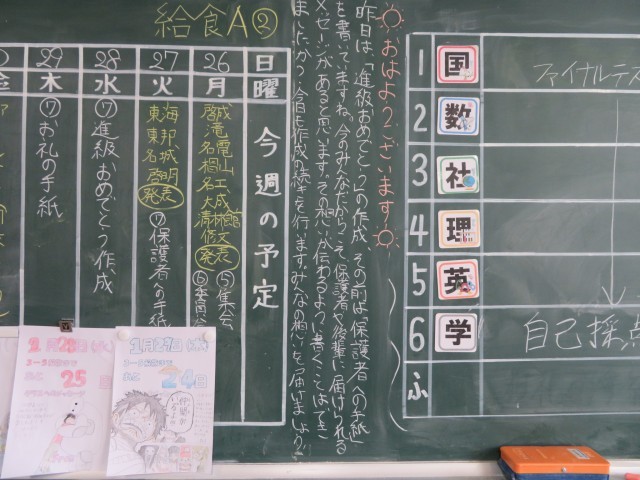 給食A②
日 26 27 28 29
曜 月 火 水 木 金
今週の予定
啓成
滝 電山
名 楊 工
名 大成
清林館
修文
発表
⑤集会
⑥
東海
東邦
名城
啓明
発表
⑦保護者への手紙
⑦進級おめでとう作成
⑦お礼の手紙
おはようございます!
昨日は、「進級おめでとう」の作成、その前は「保護者への手紙」
を書いていますね。今のみんなだからこそ、保護者や後輩に届けられる
メッセージがあると思います。その想いが伝わるように書くことはできて
ましたか？今日も作成の続きを行います。みんなの想いを、届けましょう!!
1 国 ファイナルテス
2 数
3 社
4 理
5 英
6 学 自己採点
ふ
2月28日(水)
25
1月29日
24日